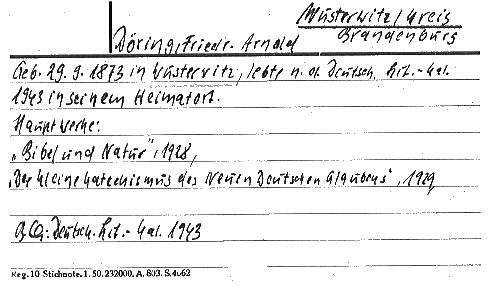 Wusterwitz/Kreis
Brandenburg
Döring, Friedr. Arnold
Geb. 29. 9. 1873 in Wusterwitz, lebte n. d. Deutsch. Lit.-Kal.
1943 in seinem Heimatort.
Hauptwerke:
„Bibel und Natur", 1928,
„Der kleine Katechismus des Neuen Deutschen Glaubens", 1929
B.Q.: Deutsch. Lit.-Kal. 1943
Reg. 10 Stichnote. 1. 50. 232000. A. 803. S. 4062